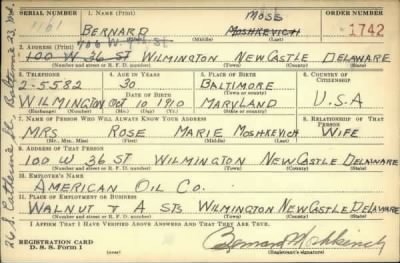 SERIAL NUMBER 1. NAME (Print) MOSS ORDER NUMBER
1161 BERNARD MOSHKEVICH 1742
(First) (Middle) (Last)
2. ADDRESS (Print) 706 W
100 W 36 ST WILMINGTON NEW CASTLE DELAWARE
(Number and street or R. F. D. number) (Town) (County) (State)
3. TELEPHONE 4. AGE IN YEARS 5. PLACE OF BIRTH 6. COUNTRY OF CITIZENSHIP
2-5582 30 BALTIMORE
(Town or county)
DATE OF BIRTH
WILMINGTON OCT 10 1910 MARYLAND U.S.A
(Exchange) (Number) (Mo.) (Day) (Yr.) (State or country)
7. NAME OF PERSON WHO WILL ALWAYS KNOW YOUR ADDRESS 8. RELATIONSHIP OF THAT PERSON
MRS ROSE MARIE MOSHKEVICH WIFE
(Mr., Mrs., Miss) (First) (Middle) (Last)
9. ADDRESS OF THAT PERSON
100 W 36 ST WILMINGTON NEW CASTLE DELAWARE
(Number and street or R. F. D. number) (Town) (County) (State)
10. EMPLOYER'S NAME
AMERICAN OIL CO.
11. PLACE OF EMPLOYMENT OR BUSINESS
WALNUT & A STS WILMINGTON NEW CASTLE DELAWARE
(Number and street or R. F. D. number) (Town) (County) (State)
I AFFIRM THAT I HAVE VERIFIED ABOVE ANSWERS AND THAT THEY ARE TRUE.
REGISTRATION CARD
D. S. S. Form 1 Bernard Moshkevich
(Registrant's signature)